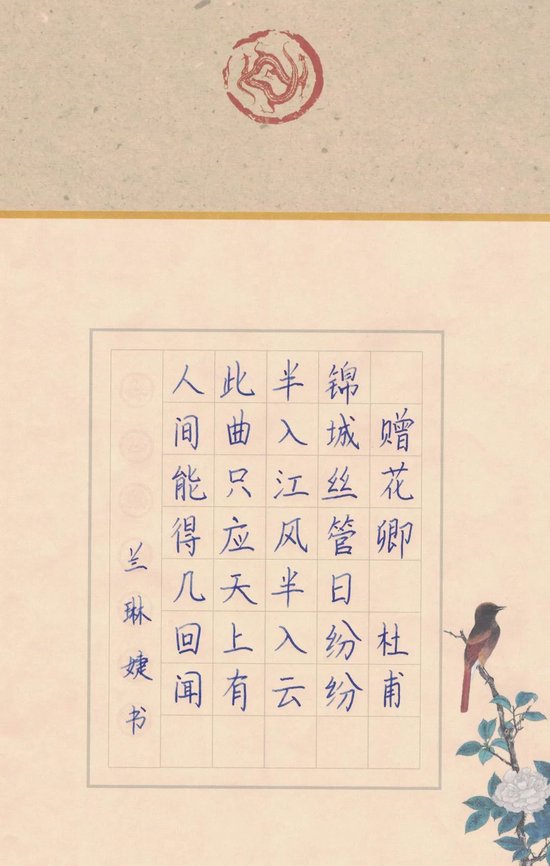 赠花卿 杜甫
锦城丝管日纷纷
半入江风半入云
此曲只应天上有
人间能得几回闻
兰琳婕书